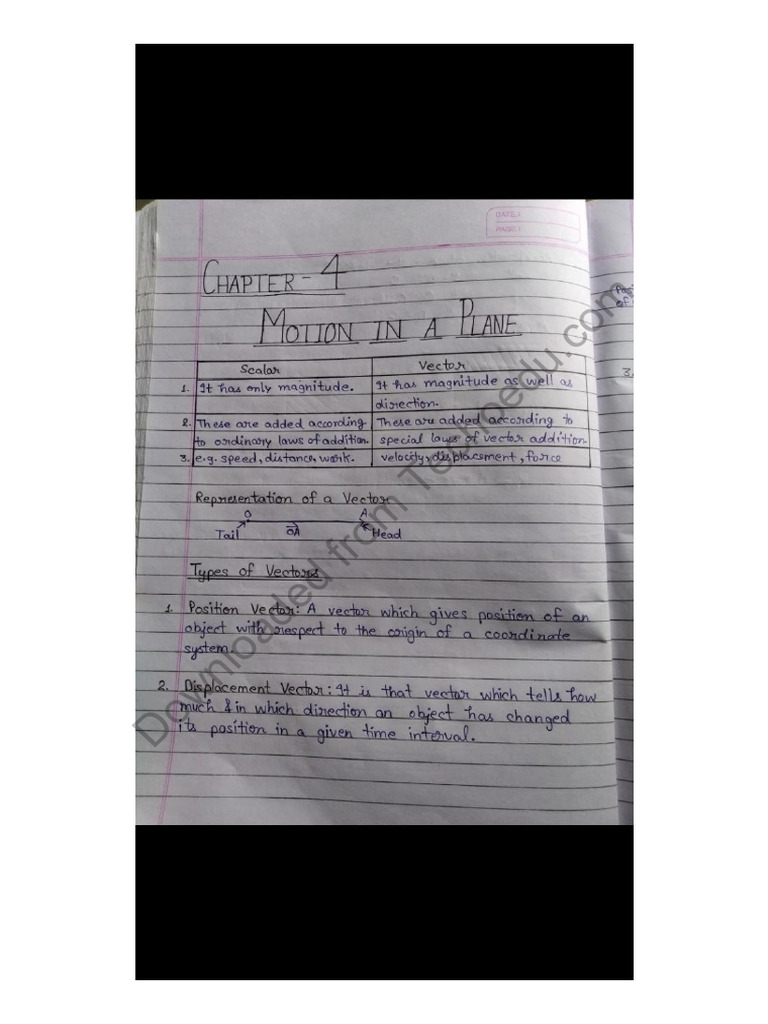 DATE:
PAGE:
CHAPTER-4
MOTION IN A PLANE
Scalar Vector
1. It has only magnitude. It has magnitude as well as
direction.
2. These are added according These are added according to
to ordinary laws of addition. special laws of vector addition.
3. e.g. speed, distance, work. velocity, displacement, force
Representation of a Vector
O A
Tail OA Head
Types of Vectors
1. Position Vector: A vector which gives position of an
object with respect to the origin of a coordinate
system.
2. Displacement Vector: It is that vector which tells how
much & in which direction an object has changed
its position in a given time interval.
of
3.
Downloaded from Techoedu.com